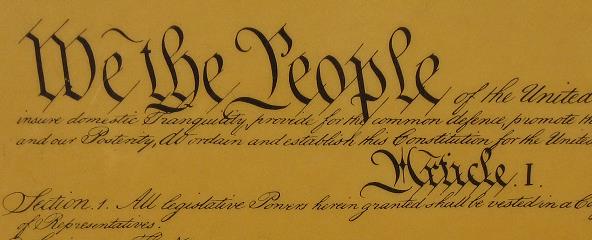 We the People of the United
insure domestic Tranquility, provide for the common defence, promote th
and our Posterity, do ordain and establish this Constitution for the United
Article. I.
Section. 1. All legislative Powers herein granted shall be vested in a Co
of Representatives.